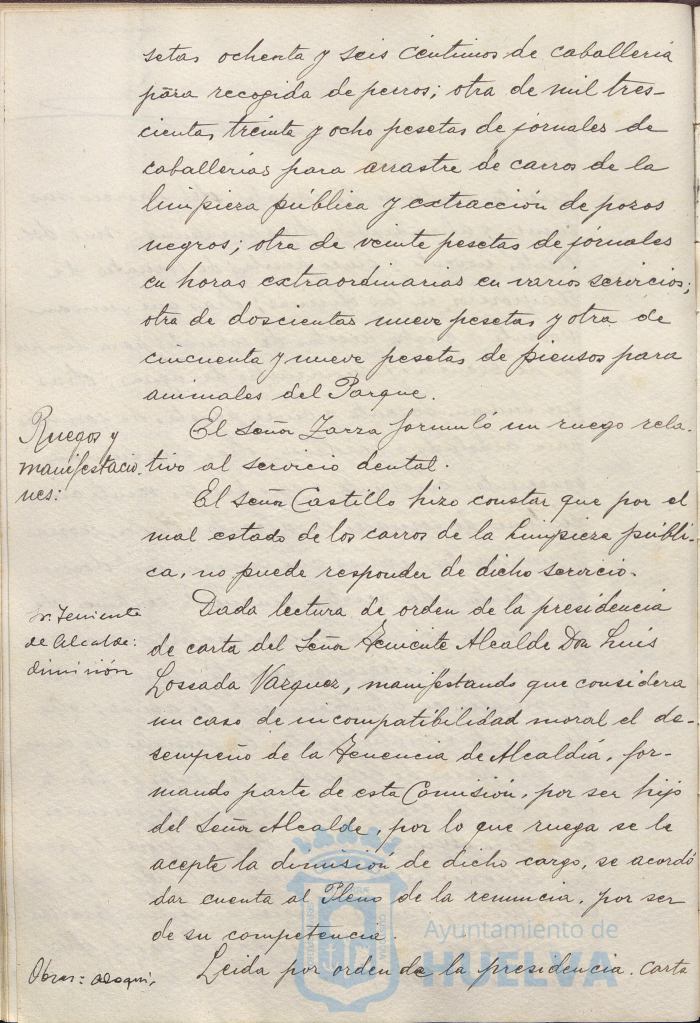 setas ochenta y seis céntimos de caballeria
para recogida de perros; otra de mil tres-
cientas treinta y ocho pesetas de jornales de
caballerias para arrastre de carros de la
limpieza pública y extracción de pozos
negros; otra de veinte pesetas de jornales
en horas extraordinarias en varios servicios;
otra de doscientas nueve pesetas y otra de
cincuenta y nueve pesetas de piensos para
animales del Parque.
Ruegos y
manifestacio-
nes:
El señor Zarza formuló un ruego rela-
tivo al servicio dental.
El señor Castillo hizo constar que por el
mal estado de los carros de la limpieza públi-
ca, no puede responder de dicho servicio.
Sr. Teniente
de Alcalde:
dimisión
Dada lectura de orden de la presidencia
de carta del Señor Teniente Alcalde Don Luis
Lossada Vazquez, manifestando que considera
un caso de incompatibilidad moral el de-
sempeño de la Tenencia de Alcaldía, for-
mando parte de esta Comisión, por ser hijo
del Señor Alcalde, por lo que ruega se le
acepte la dimisión de dicho cargo, se acordó
dar cuenta al Pleno de la renuncia, por ser
de su competencia.
Obras: adoqui.
Leida por orden de la presidencia, carta
Ayuntamiento de
HUELVA